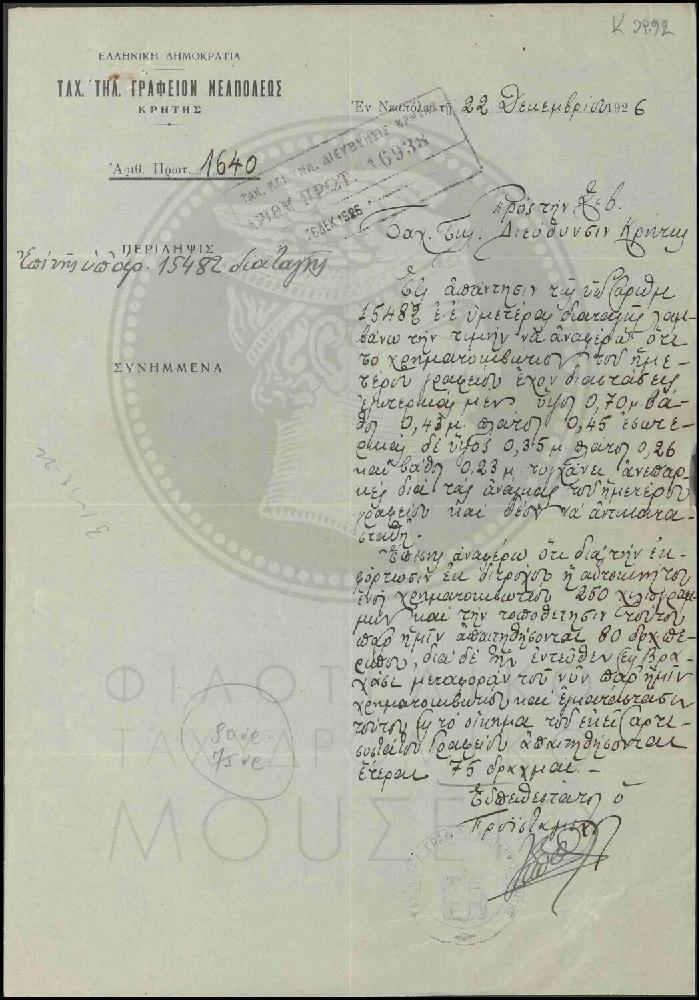 Κ 3992
ΕΛΛΗΝΙΚΗ ΔΗΜΟΚΡΑΤΙΑ
ΤΑΧ. ΤΗΛ. ΓΡΑΦΕΙΟΝ ΝΕΑΠΟΛΕΩΣ
ΚΡΗΤΗΣ
Ἐν Νεαπόλει τῇ 22 Δεκεμβρίου 1926
Ἀριθ. Πρωτ. 1640
ΤΑΧ. ΚΑΙ ΤΗΛ. ΔΙΕΥΘΥΝΣΙΣ ΚΡΗΤΗΣ
ΑΡΙΘΜ ΠΡΩΤ. 16938
ΔΕΚ 1926
Πρὸς τὴν Σεβ.
Ταχ. Τηλ. Διεύθυνσιν Κρήτης
ΠΕΡΙΛΗΨΙΣ
Ἐπὶ τῆς ὑπ' ἀρ. 15482 διαταγῆς
ΣΥΝΗΜΜΕΝΑ
Εἰς ἀπάντησιν τῆς ὑπ' ἀριθμ
15482 ἐ.ἔ ὑμετέρας διαταγῆς λαμ-
βάνω τὴν τιμὴν νὰ ἀναφέρω ὅτι
τὸ χρηματοκιβώτιον τοῦ ἡμε-
τέρου γραφείου ἔχον διαστάσεις
ἐξωτερικὰς μὲν ὕψος 0,70 μ. βά-
θος 0,43 μ. πλάτος 0,45 ἐσωτε-
ρικὰς δὲ ὕψος 0,35 μ. πλάτος 0,26
καὶ βάθος 0,23 μ. τυγχάνει ἀνεπαρ-
κὲς διὰ τὰς ἀνάγκας τοῦ ἡμετέρου
γραφείου καὶ δέον νὰ ἀντικατα-
σταθῇ.
Ἐπίσης ἀναφέρω ὅτι διὰ τὴν ἐκ-
φόρτωσιν ἐκ διτρόχου ἢ αὐτοκινήτου
ἑνὸς χρηματοκιβωτίου 250 χιλιογράμ-
μων καὶ τὴν τοποθέτησιν τούτου
παρ' ἡμῖν ἀπαιτηθήσονται 80 δρχ πε-
ρίπου, διὰ δὲ τὴν ἐντεῦθεν εἰς Βρα-
χάσι μεταφορὰν τοῦ νῦν παρ' ἡμῖν
χρηματοκιβωτίου καὶ ἐγκατάστασιν
τούτου εἰς τὸ οἴκημα τοῦ ἐκεῖ ἀρτι-
συστάτου Γραφείου ἀπαιτηθήσονται
ἕτεραι 75 δραχμαί.—
80 δρ.
75 δρ
Εὐπειθέστατος ὁ
Προϊστάμενος
ΦΙΛΟΤΕΛΙΚΟ
ΤΑΧΥΔΡΟΜΙΚΟ
ΜΟΥΣΕΙΟ